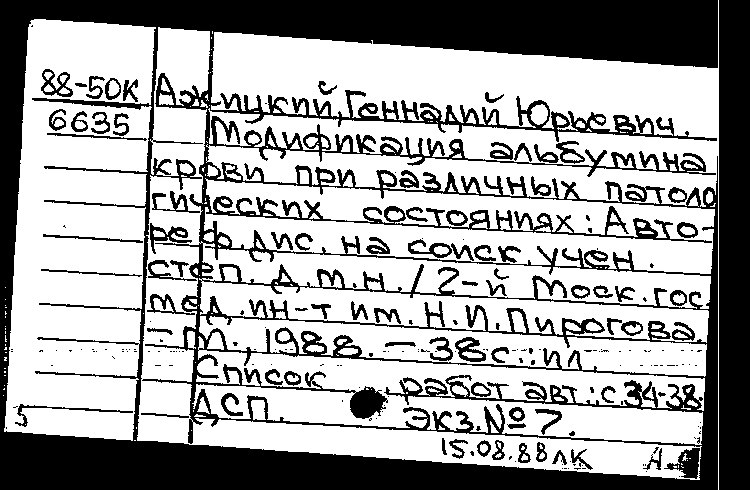 88-50К Ажицкий, Геннадий Юрьевич.
6635 Модификация альбумина
крови при различных патоло
гических состояниях: Авто-
реф. дис. на соиск. учен.
степ. д.м.н. / 2-й Моск. гос.
мед. ин-т им. Н.И. Пирогова.
- М., 1988. - 38с.: ил.
Список работ авт.: с. 34-38.
ДСП. Экз. № 7.
5 15.08.88 лк